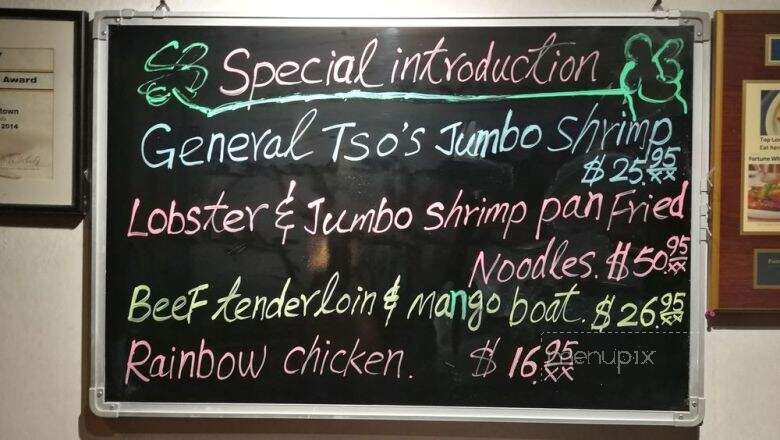 Special introduction
General Tso's Jumbo Shrimp
$25.95
Lobster & Jumbo shrimp pan Fried
Noodles. $50.95
Beef tenderloin & mango boat. $26.95
Rainbow chicken. $16.95
menupix
Award
town
2014
Top Lon
Eat here
Fortune Wh